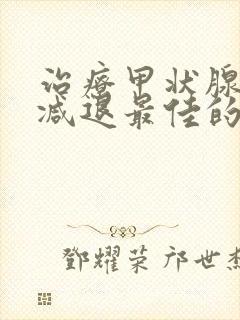 治疗甲状腺
减退最佳的
鄧耀荣 邝世杰